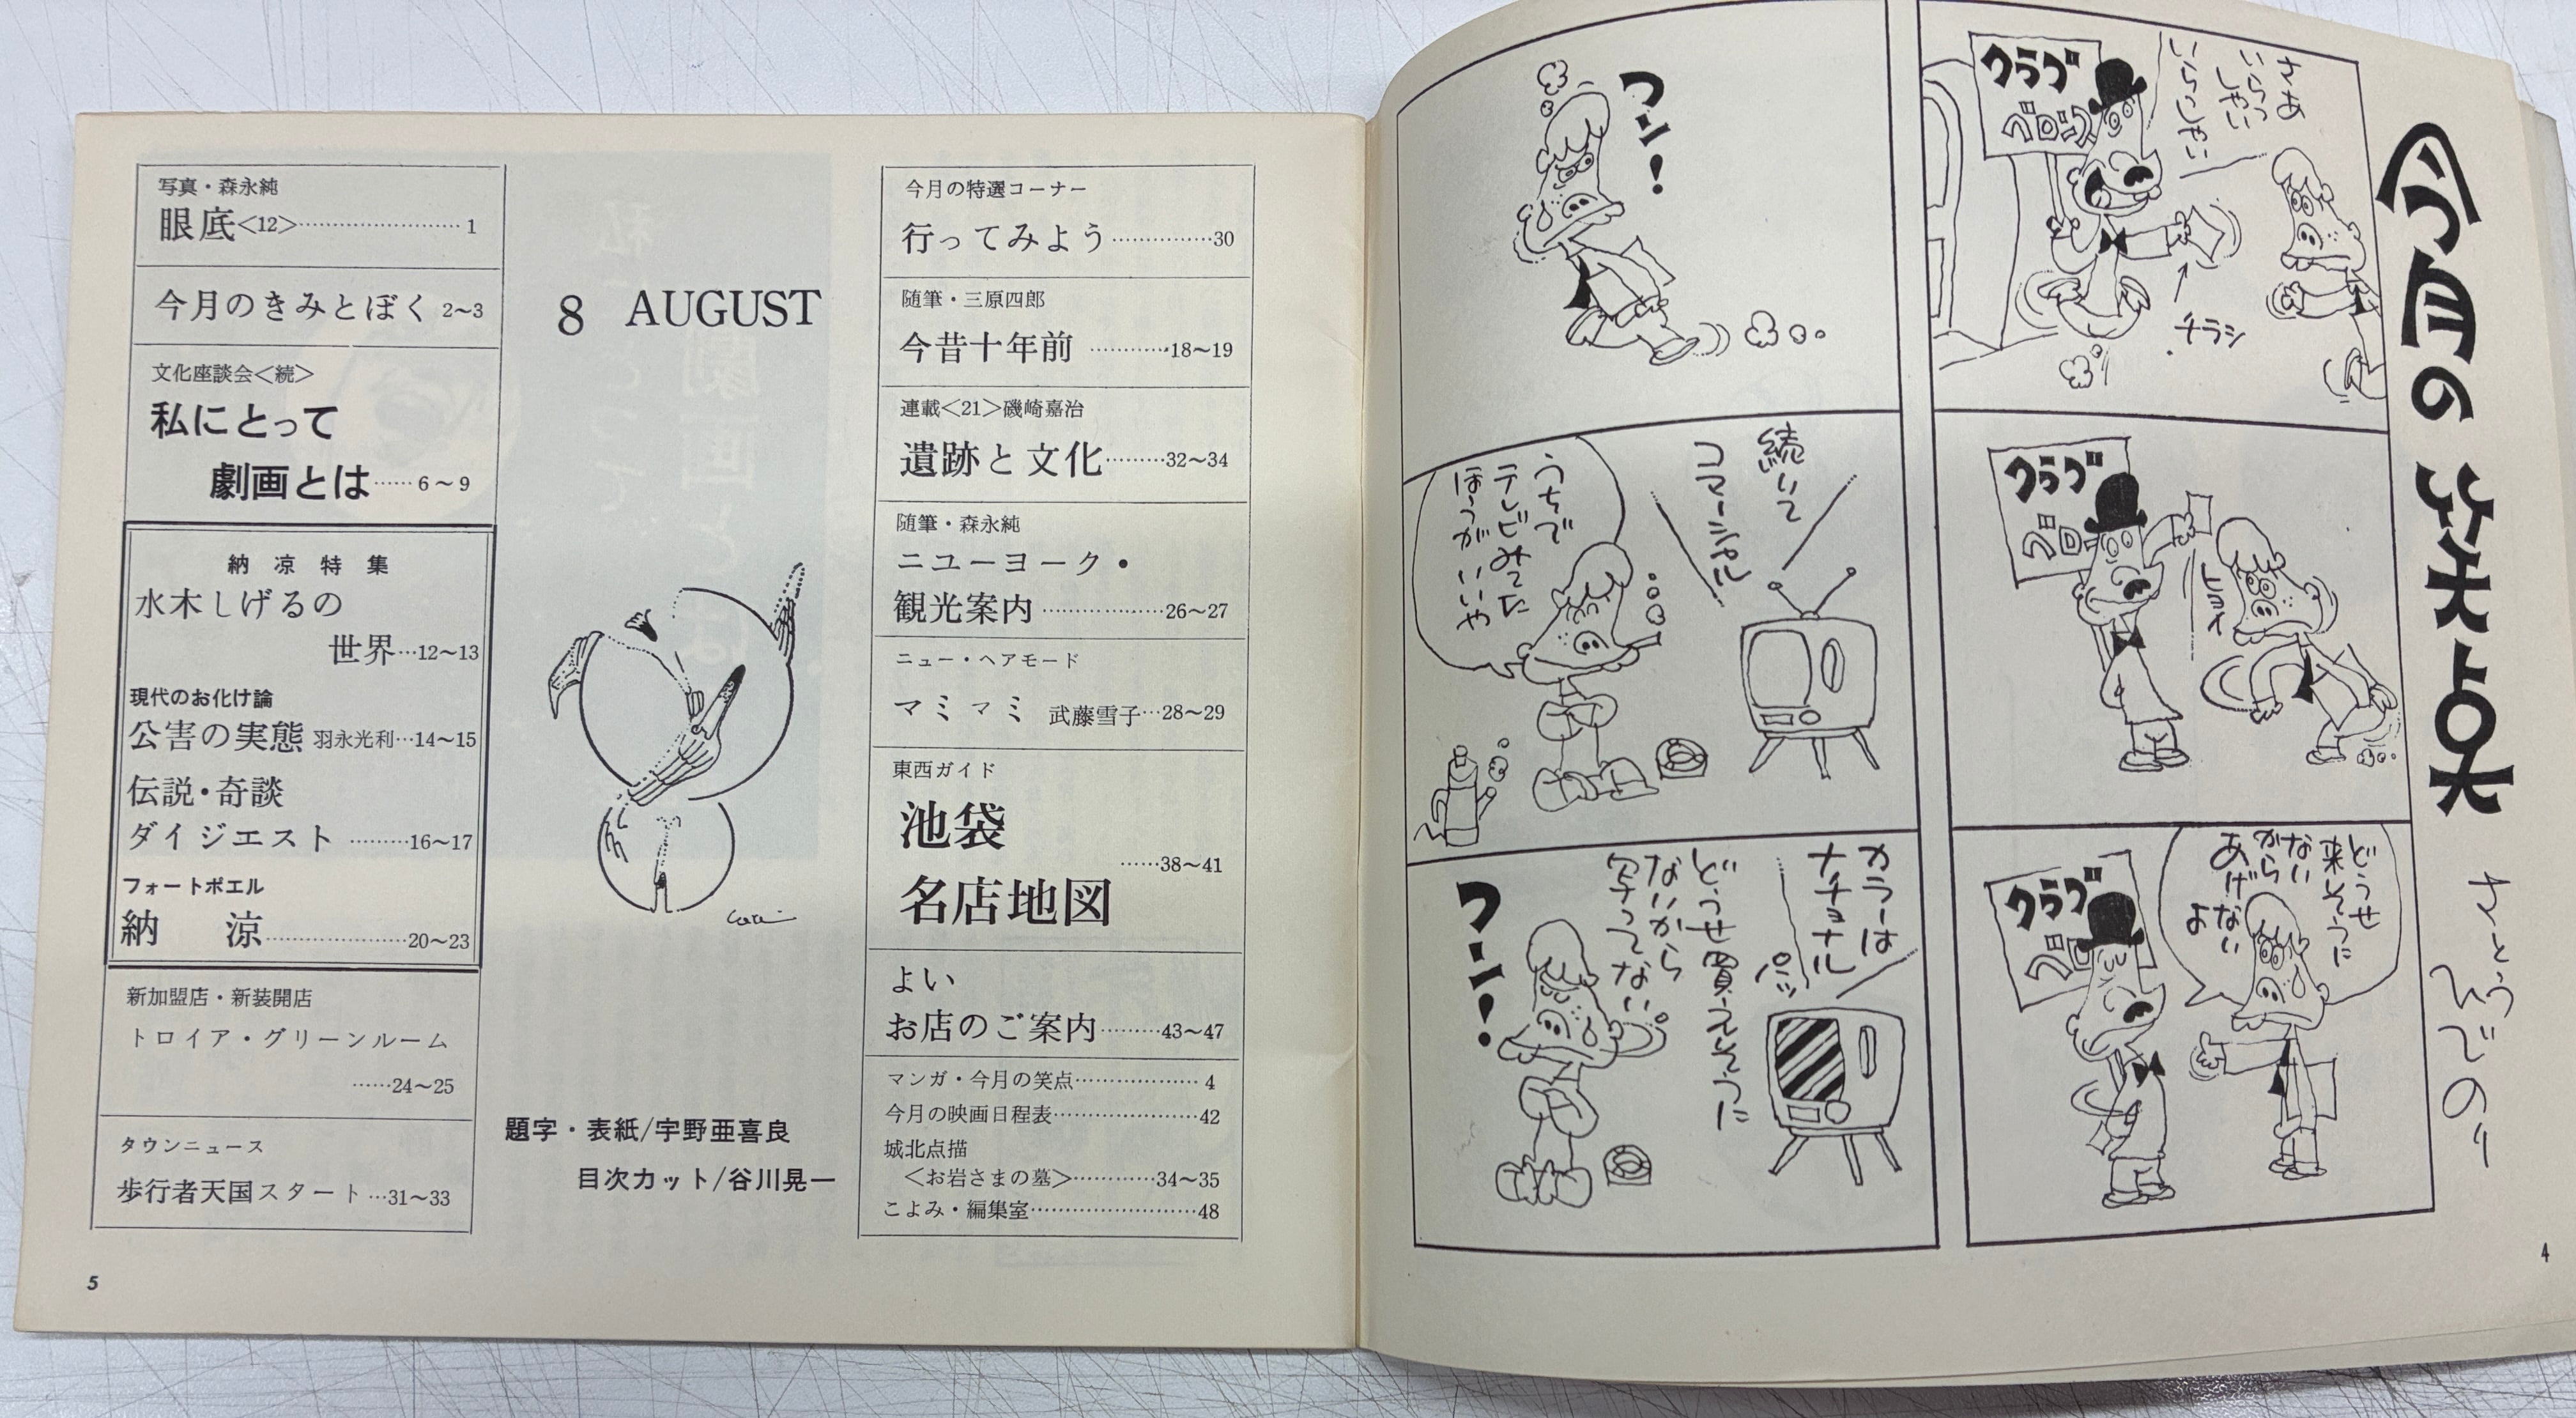 今月の笑点
さとうひでのり
クラブ
さあ
いらっ
しゃい
いらっしゃい
チラシ
クラブ
ヒョイ
クラブ
どうせ
来そうに
ない
から
あげない
よ
フン!
続いて
コマーシャル
うちで
テレビみてた
ほうがいいや
カラーは
ナチョナル
パッ
どうせ買えそうに
ないから
写ってない。
フン!
4
写真・森永純
眼底<12>……………………1
今月のきみとぼく 2〜3
文化座談会<続>
私にとって
劇画とは……6〜9
納涼特集
水木しげるの
世界…12〜13
現代のお化け論
公害の実態 羽永光利…14〜15
伝説・奇談
ダイジェスト………16〜17
フォートポエル
納　涼…………………20〜23
新加盟店・新装開店
トロイア・グリーンルーム
……24〜25
タウンニュース
歩行者天国スタート…31〜33
8 AUGUST
題字・表紙/宇野亜喜良
目次カット/谷川晃一
今月の特選コーナー
行ってみよう……………30
随筆・三原四郎
今昔十年前…………18〜19
連載<21>磯崎嘉治
遺跡と文化………32〜34
随筆・森永純
ニューヨーク・
観光案内………………26〜27
ニュー・ヘアモード
マミマミ 武藤雪子…28〜29
東西ガイド
池袋
……38〜41
名店地図
よい
お店のご案内………43〜47
マンガ・今月の笑点………………4
今月の映画日程表…………………42
城北点描
<お岩さまの墓>…………34〜35
こよみ・編集室……………………48
5